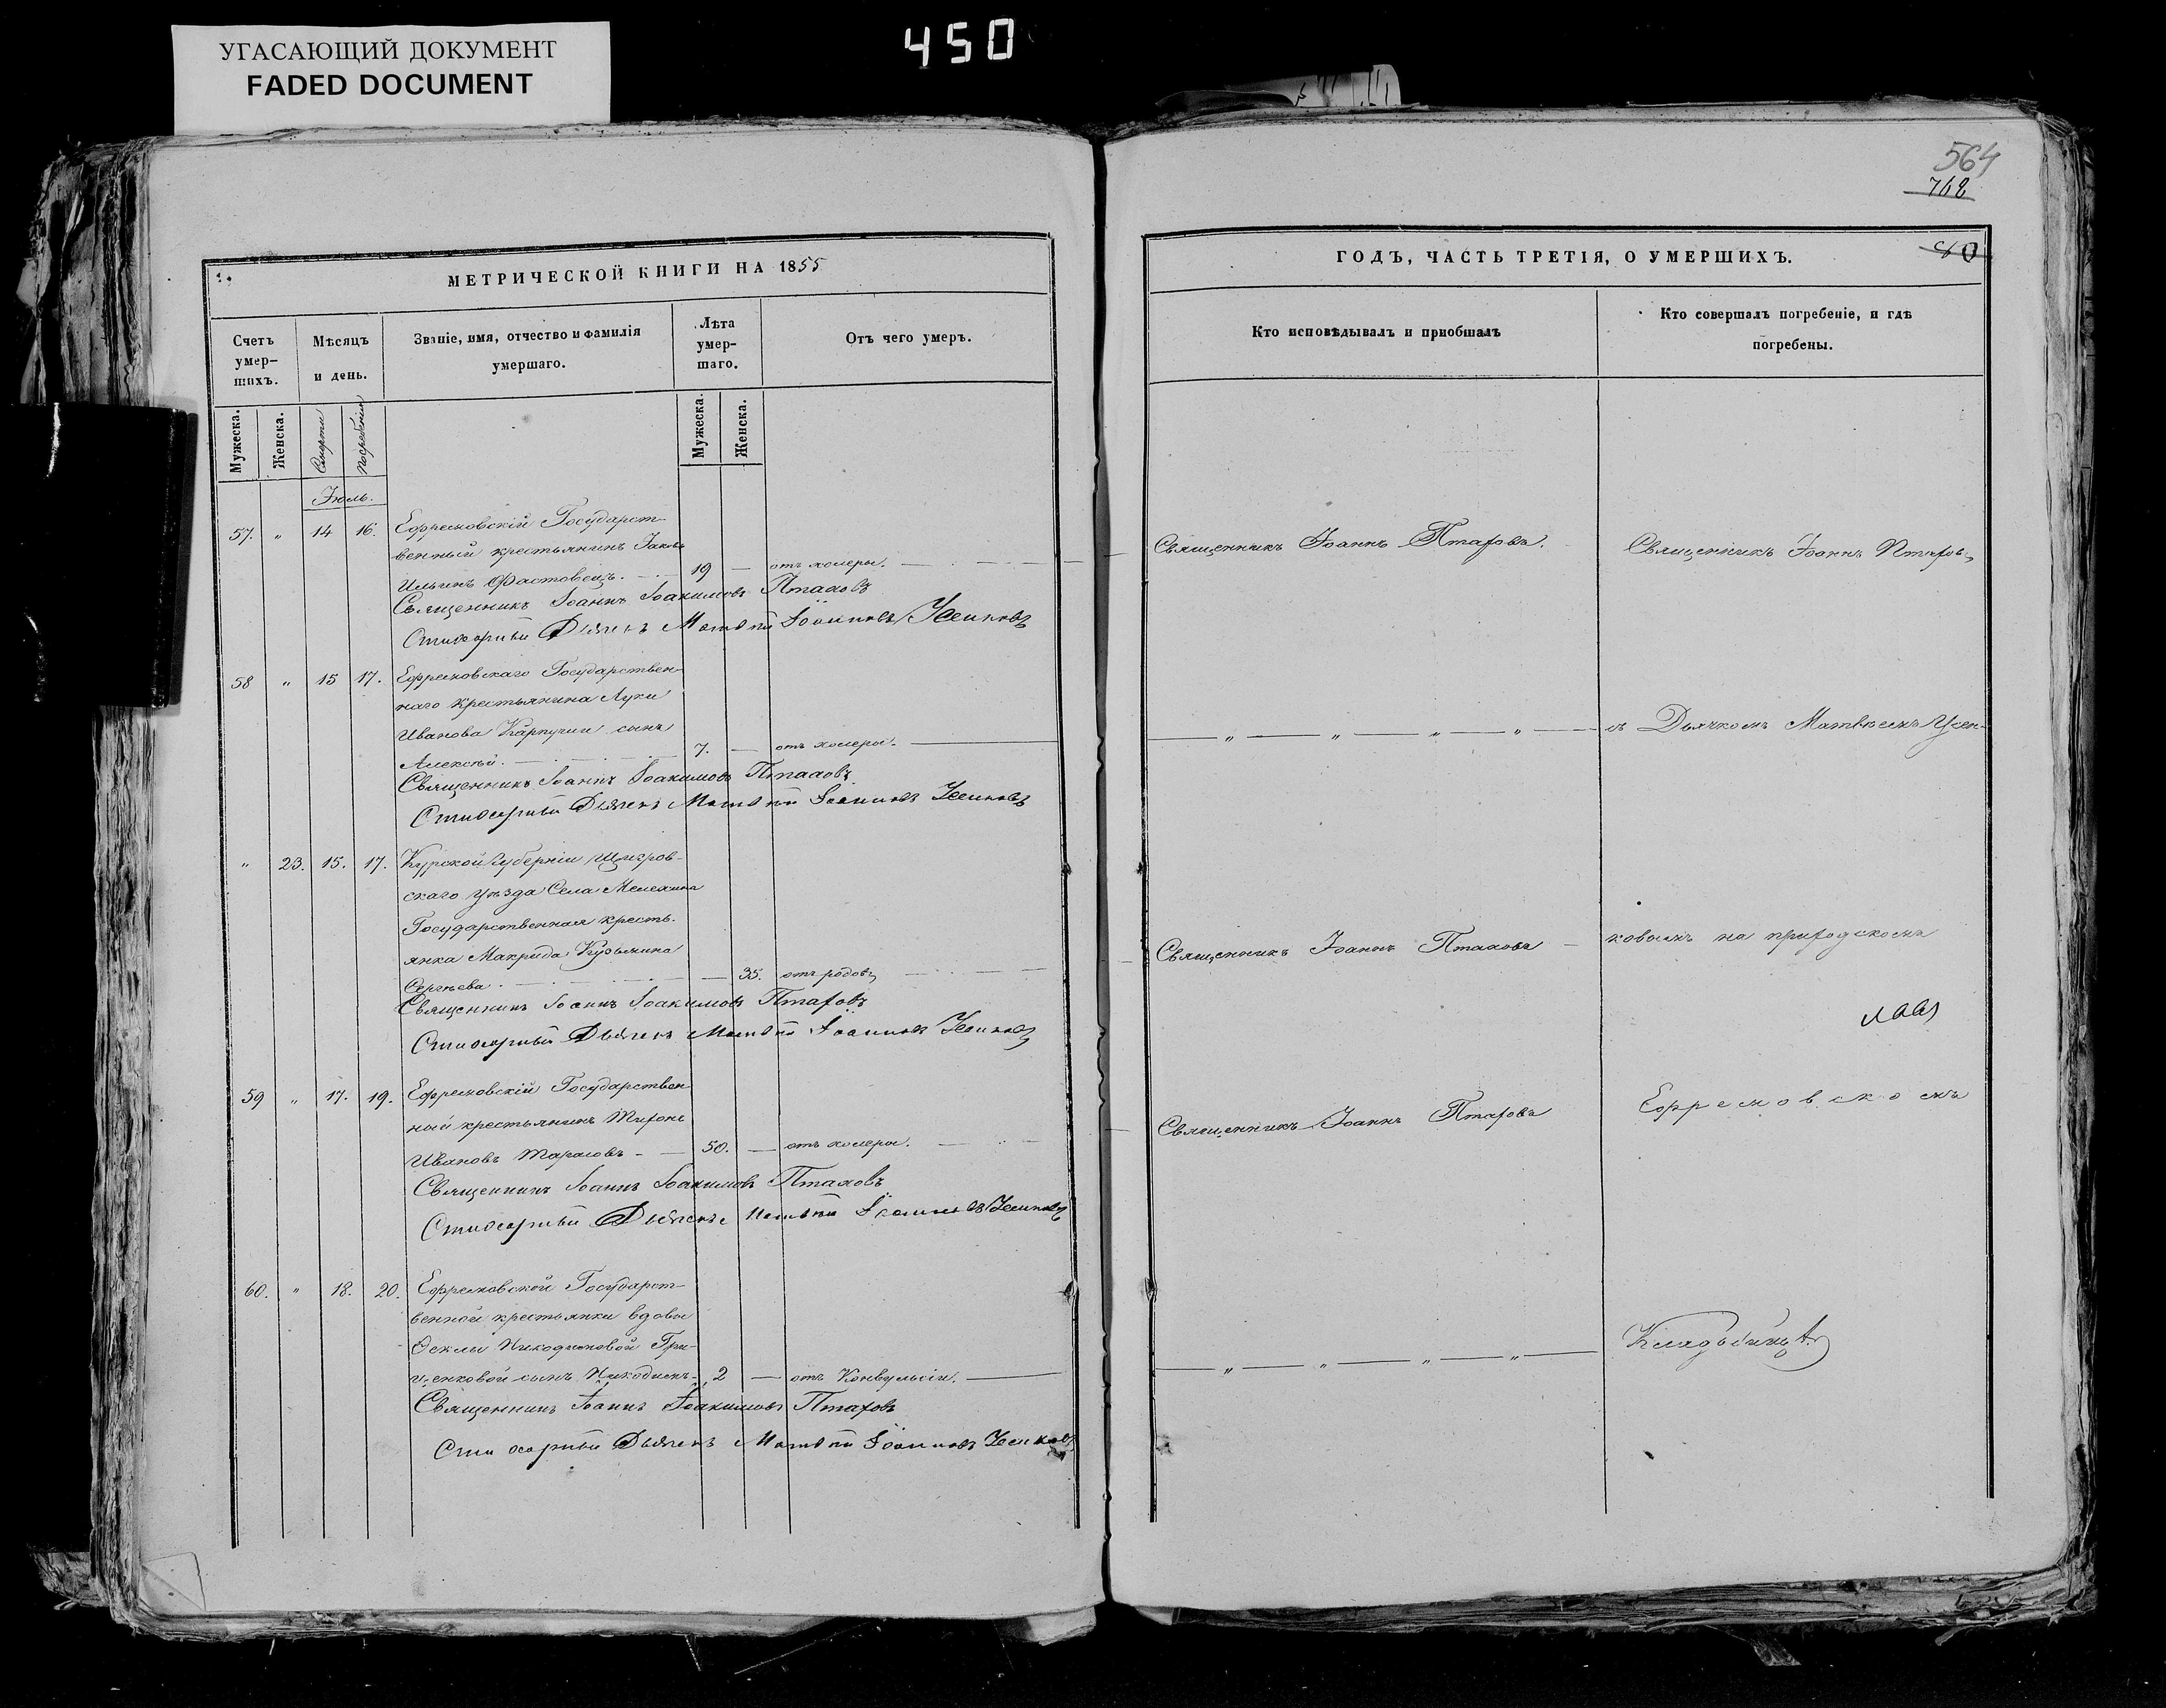 УГАСАЮЩИЙ ДОКУМЕНТ
FADED DOCUMENT
450
564
768
МЕТРИЧЕСКОЙ КНИГИ НА 1855
Счетъ умер-шихъ.
Мѣсяцъ и день.
Званіе, имя, отчество и фамилія умершаго.
Лѣта умер-шаго.
Отъ чего умеръ.
Мужеска.
Женска.
Смерти
Погребенія
Мужеска.
Женска.
Іюль.
57. " 14 16. Ефремовскій Государст-
венный крестьянинъ Іаковъ
Ильинъ Фастовецъ. 19 — отъ холеры.
Священникъ Іоаннъ Іоакимовъ Птаховъ
Стихарный Дьячекъ Матвѣй Іоанновъ Усенковъ
58 " 15 17. Ефремовскаго Государствен-
наго крестьянина Луки
Иванова Карпучи сынъ
Алексѣй. 7. — отъ холеры.
Священникъ Іоаннъ Іоакимовъ Птаховъ
Стихарный Дьячекъ Матвѣй Іоанновъ Усенковъ
" 23. 15. 17. Курской Губерніи Щигров-
скаго Уѣзда Села Мелехина
Государственная кресть-
янка Макрида Кузьмина
Сергѣева. — 35. отъ родовъ
Священникъ Іоаннъ Іоакимовъ Птаховъ
Стихарный Дьячекъ Матвѣй Іоанновъ Усенковъ
59 " 17. 19. Ефремовскій Государствен-
ный крестьянинъ Миронъ
Ивановъ Тарасовъ - 50. — отъ холеры.
Священникъ Іоаннъ Іоакимовъ Птаховъ
Стихарный Дьячекъ Матвѣй Іоанновъ Усенковъ
60. " 18. 20. Ефремовской Государст-
венной крестьянки вдовы
Феклы Никодимовой Гри-
щенковой сынъ Никодимъ - 2 — отъ Конвульсіи.
Священникъ Іоаннъ Іоакимовъ Птаховъ
Стихарный Дьячекъ Матвѣй Іоанновъ Усенковъ
ГОДЪ, ЧАСТЬ ТРЕТІЯ, О УМЕРШИХЪ.
Кто исповѣдывалъ и приобщалъ
Кто совершалъ погребеніе, и гдѣ погребены.
Священникъ Іоаннъ Птаховъ.
Священникъ Іоаннъ Птаховъ
— " — " — " — " —
съ Дьячкомъ Матвѣемъ Усен-
Священникъ Іоаннъ Птаховъ
ковымъ на приходскомъ
Священникъ Іоаннъ Птаховъ
Ефремовскомъ
— " — " — " — " —
Кладбищѣ.